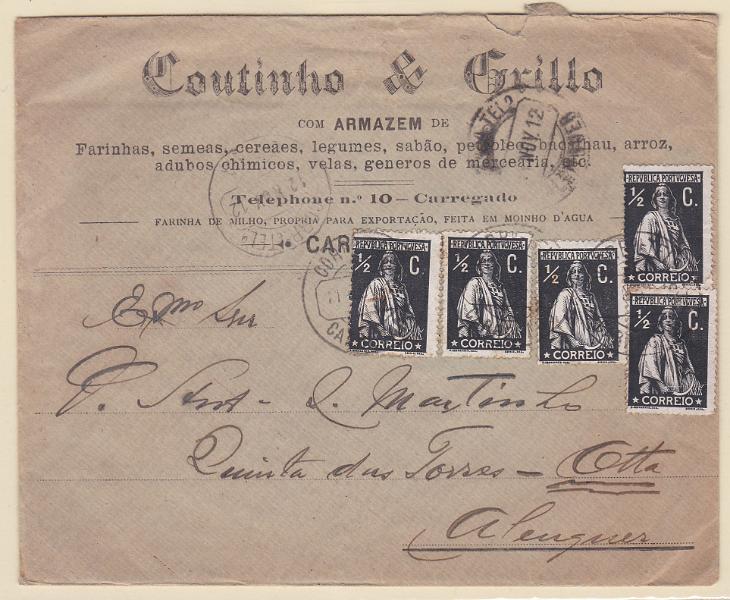 Coutinho & Grillo
COM ARMAZEM DE
Farinhas, semeas, cereaes, legumes, sabão, petroleo, bacalhau, arroz,
adubos chimicos, velas, generos de mercearia, etc.
Telephone n.º 10 — Carregado
FARINHA DE MILHO, PROPRIA PARA EXPORTAÇÃO, FEITA EM MOINHO D'AGUA
CAR
NOV. 12
REPUBLICA PORTVGVESA
½ C.
CORREIO
REPUBLICA PORTVGVESA
½ C.
CORREIO
REPUBLICA PORTVGVESA
½ C.
CORREIO
REPUBLICA PORTVGVESA
½ C.
CORREIO
REPUBLICA PORTVGVESA
½ C.
CORREIO
Exmo Snr
S. Martinho
Quinta das Torres — Otta
Alenquer